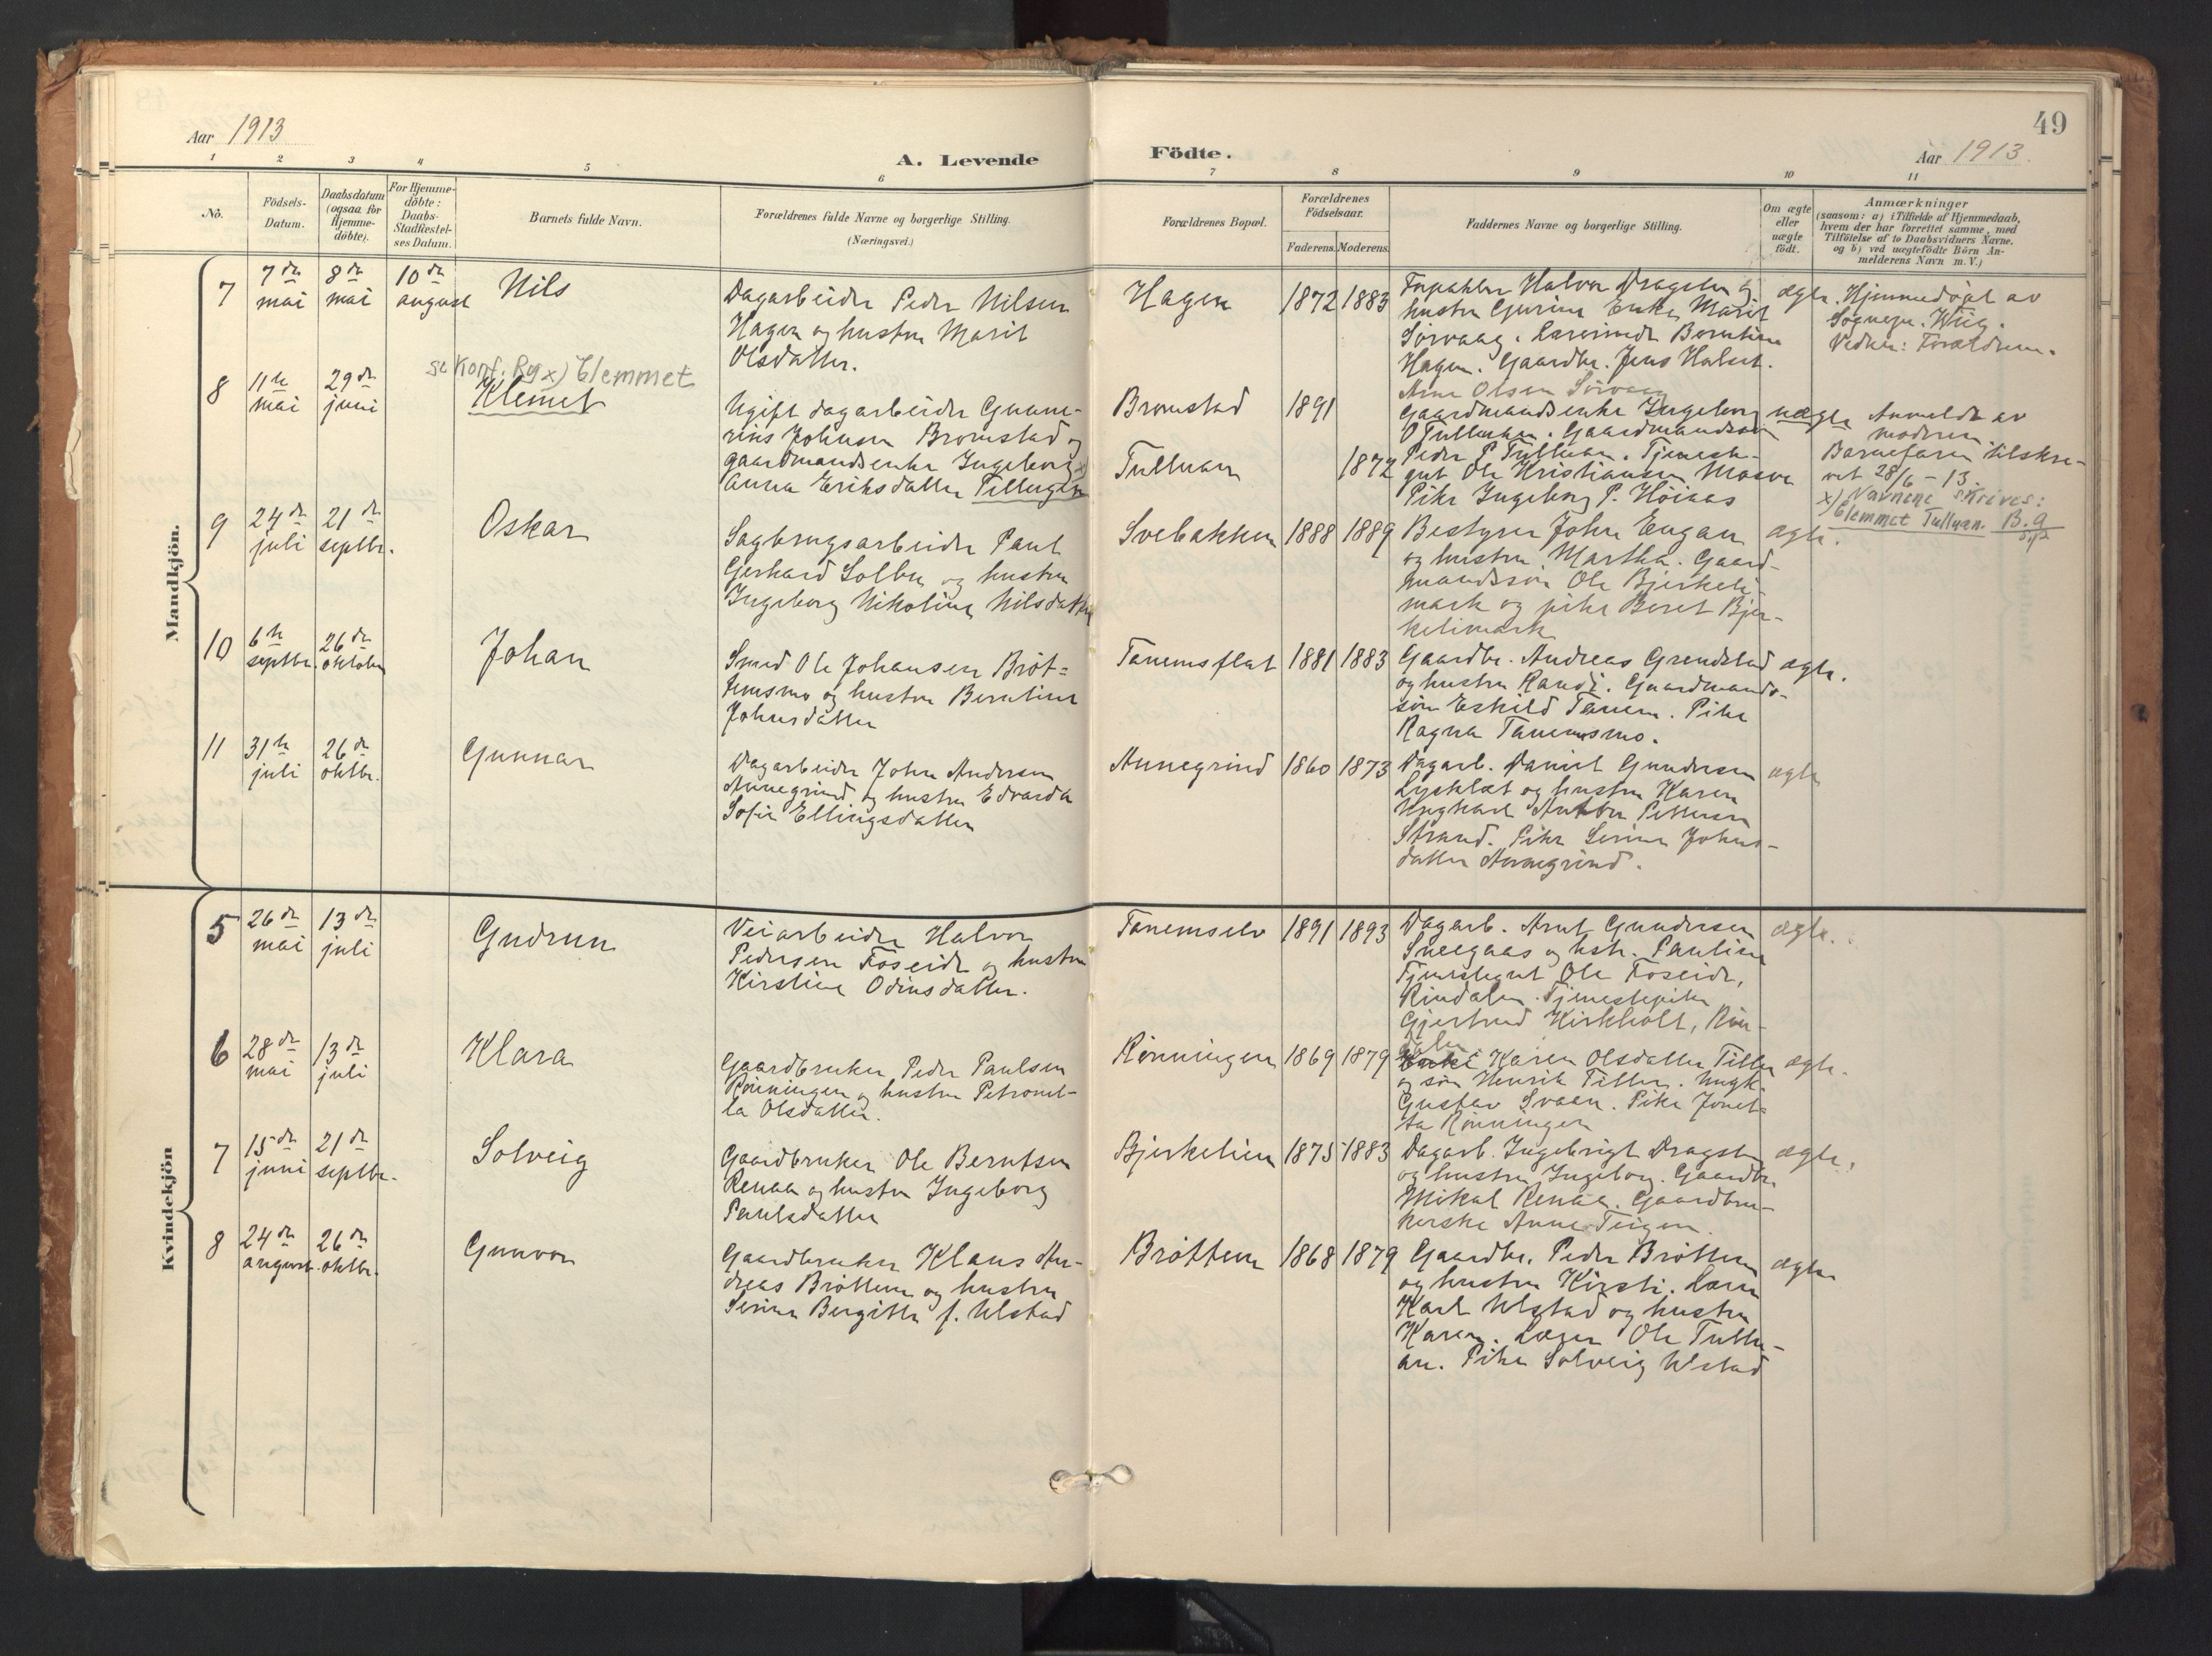 49
Aar 1913
Aar 1913.
A. Levende
Födte.
1 2 3 4 5 6 7 8 9 10 11
No.
Födsels-
Datum.
Daabsdatum
(ogsaa for
Hjemme-
döbte).
For Hjemme-
döbte:
Daabs-
Stadfæstel-
ses Datum.
Barnets fulde Navn.
Forældrenes fulde Navne og borgerlige Stilling.
(Næringsvei.)
Forældrenes Bopæl.
Forældrenes
Födselsaar.
Faderens. Moderens.
Faddernes Navne og borgerlige Stilling.
Om ægte
eller
uægte
födt.
Anmærkninger
(saasom: a) i Tilfælde af Hjemmedaab,
hvem der har forrettet samme, med
Tilföielse af to Daabsvidners Navne.
og b) ved uægtefödte Börn An-
melderens Navn m. V.)
Mandkjön.
7
7de
mai
8de
mai
10de
august
Nils
Dagarbeider Peder Nilsen
Hagen og hustru Marit
Olsdatter.
Hagen
1872 1883
Forpakter Halvor Dragsten og
hustru Gurine. Enke Marit
Sörvaag. Berntine
Hagen. Gaardbr. Jens Halset.
Arne Olsen Sörvaag
ægte.
Hjemmedöpt av
Sognepr. Wiig.
Vidner: Forældrene.
8
11te
mai
29de
juni
se Konf. Rg x) Clemmet
Klemet
Ugift dagarbeider Gunne-
rius Johnsen Bromstad og
gaardmandsenke Ingeborg x
Anna Eriksdatter Tillugen
Bromstad
Tulluan
1891
1872
Gaardmandsenke Ingeborg
O Tulluan. Gaardmandssön
Peder P. Tulluan. Tjeneste-
gut Ole Kristiansen Mosve
Pike Ingeborg P. Höiaas
uægte
Anmeldt av
moderen.
Barnefaren tilskre-
vet 28/6 - 13.
x) Navnene skrives:
Clemmet Tulluan. B.a
9
24de
juli
21de
septbr.
Oskar
Sagbrugsarbeider Paul
Gerhard Solbu og hustru
Ingeborg Nikoline Nilsdatter
Svebakken
1888 1889
Bestyrer John Engan
og hustru Martha. Gaard-
mandssön Ole Bjerkeli-
mark og pike Beret Bjer-
kelimark
ægte.
10
6te
septbr.
26de
oktober
Johan
Smed Ole Johansen Bröt-
temsmo og hustru Berntine
Johnsdatter
Tanemsflat
1881 1883
Gaardbr. Andreas Grendstad
og hustru Randi. Gaardmands-
sön Eskild Tanem. Pike
Ragna Tanemsmo.
ægte.
11
31te
juli
26de
oktbr.
Gunnar
Dagarbeider John Andersen
Annegrind og hustru Edvarda
Sofie Ellingsdatter
Annegrind
1860 1873
Dagarb. Daniel Gundersen
Lysklæt og hustru Karen
Ungkarl Anton Pettersen
Strand. Pike Serine Johns-
datter Annegrind.
ægte
Kvindekjön
5
26de
mai
13de
juli
Gudrun
Veiarbeider Halvor
Pedersen Foseide og hustru
Kirstine Odinsdatter.
Tanemselv
1891 1893
Dagarb. Arnt Gundersen
Sneegaas og hstr. Pauline
Tjenestegut Ole Foseide,
Rindalen. Tjenestepike
Gjertrud Kirkholt, Rin-
dalen
ægte.
6
28de
mai
13de
juli
Klara
Gaardbruker Peder Paulsen
Rönningen og hustru Petronel-
la Olsdatter.
Rönningen
1869 1879
Enke Karen Olsdatter Tiller
og sön Henrik Tiller. Ungk.
Gustav Svaan. Pike Jonet-
ta Rönningen
ægte.
7
15de
juni
21de
septbr.
Solveig
Gaardbruker Ole Berntsen
Renaa og hustru Ingeborg
Paulsdatter
Bjerkelien
1875 1883
Dagarb. Ingebrigt Dragsten
og hustru Ingeborg. Gaardbr.
Mikal Renaa. Gaardbru-
kerske Anne Teigen.
ægte.
8
24de
august.
26de
oktbr.
Gunvor
Gaardbruker Klaus An-
dreas Bröttem og hustru
Serine Bergitte f. Ulstad
Bröttem
1868 1879
Gaardbr. Peder Bröttem
og hustru Kirsti. Lærer
Karl Ulstad og hustru
Karen. Lærer Ole Tullu-
an. Pike Solveig Ulstad
ægte